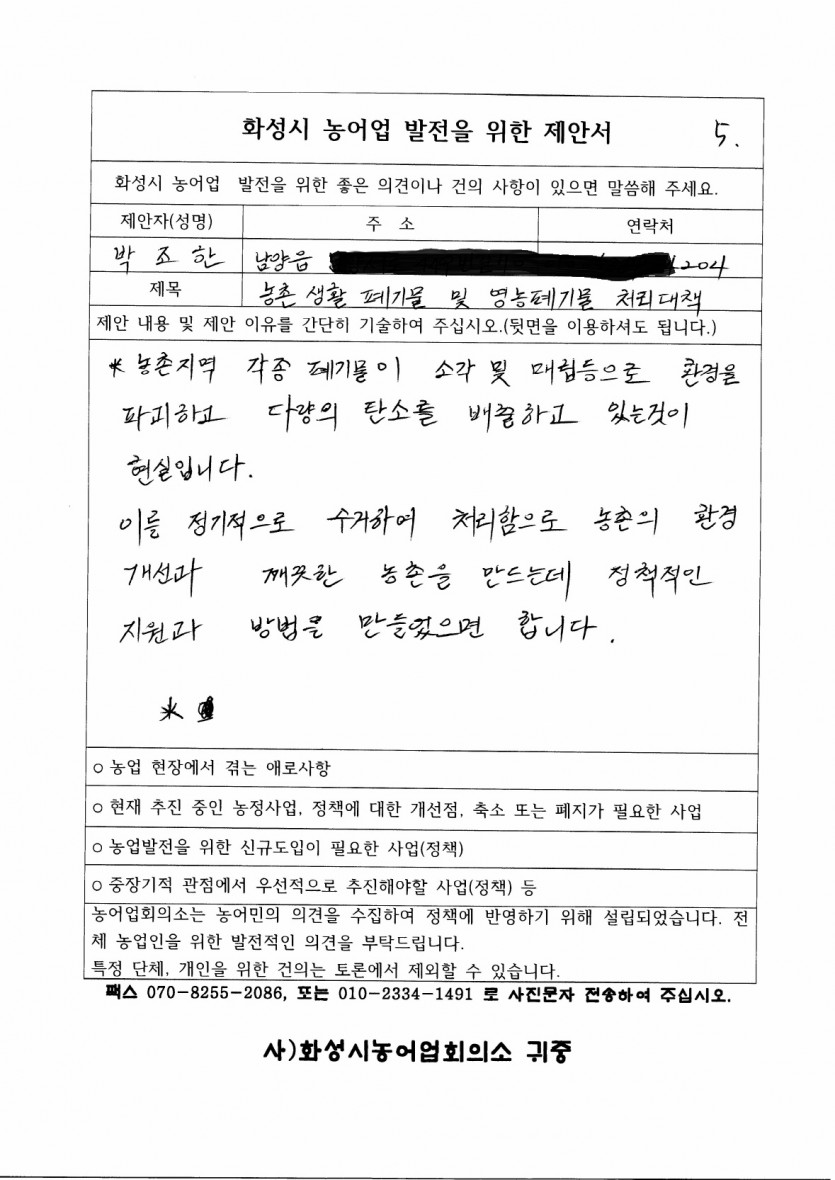 화성시 농어업 발전을 위한 제안서 5.
화성시 농어업 발전을 위한 좋은 의견이나 건의 사항이 있으면 말씀해 주세요.
제안자(성명) 주 소 연락처
박 조 한 남양읍 1204
제목 농촌 생활 폐기물 및 영농폐기물 처리대책
제안 내용 및 제안 이유를 간단히 기술하여 주십시오.(뒷면을 이용하셔도 됩니다.)
* 농촌지역 각종 폐기물이 소각 및 매립등으로 환경을
파괴하고 다량의 탄소를 배출하고 있는것이
현실입니다.
이를 정기적으로 수거하여 처리함으로 농촌의 환경
개선과 깨끗한 농촌을 만드는데 정책적인
지원과 방법을 만들었으면 합니다.
*
○ 농업 현장에서 겪는 애로사항
○ 현재 추진 중인 농정사업, 정책에 대한 개선점, 축소 또는 폐지가 필요한 사업
○ 농업발전을 위한 신규도입이 필요한 사업(정책)
○ 중장기적 관점에서 우선적으로 추진해야할 사업(정책) 등
농어업회의소는 농어민의 의견을 수집하여 정책에 반영하기 위해 설립되었습니다. 전
체 농업인을 위한 발전적인 의견을 부탁드립니다.
특정 단체, 개인을 위한 건의는 토론에서 제외할 수 있습니다.
팩스 070-8255-2086, 또는 010-2334-1491 로 사진문자 전송하여 주십시오.
사)화성시농어업회의소 귀중